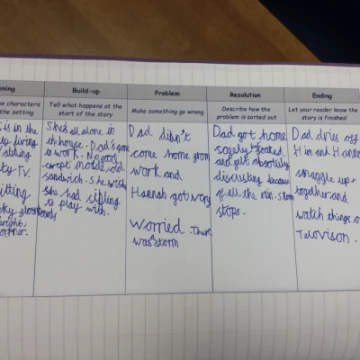 ening
Build-up
Problem
Resolution
Ending
e characters
the setting
Tell what happens at the
start of the story
Make something go wrong
Describe how the
problem is sorted out
Let your reader know the
story is finished
is in the
living
TV.
itting
Shes all alone in
the house. Dad is gone
to work. No food
except mould old
sandwich. She wish
she had sibling
to play with.
Dad didn't
come home from
work and
Hannah got very
Worried. There
was storm
Dad got home
safely soaked
and felt absolutely
disgusting because
of all the rain. storm
stops.
Dad dries off
Him and Hannah
snuggle up
together and
watch things on
Television.